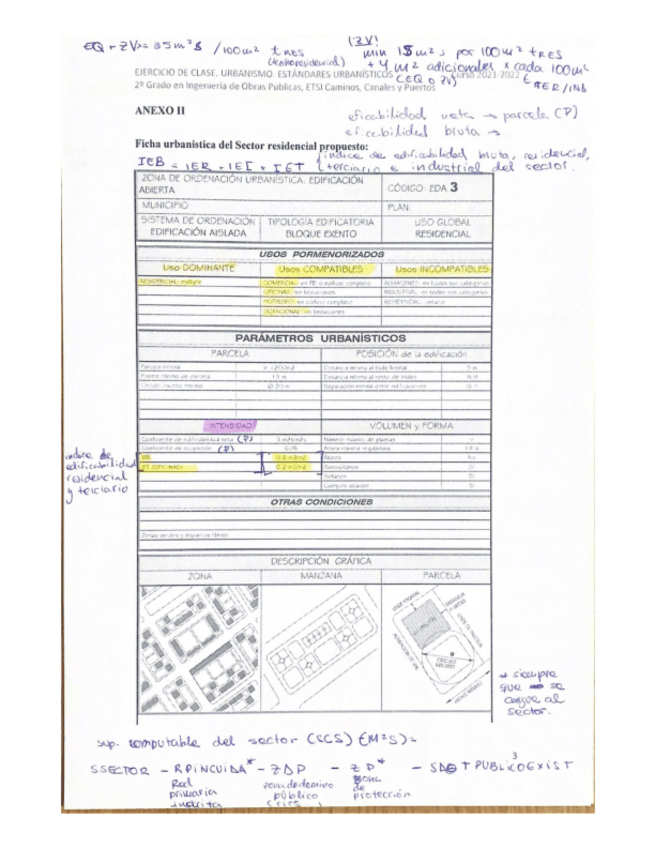 EQ + ZV >= 35 m²S /100m² tRES
(techo residencial)
¡ZV!
min 15m²s por 100m² tRES
+ 4 m² adicionales x cada 100m²
(EQ o ZV) tTER/IND
EJERCICIO DE CLASE. URBANISMO. ESTÁNDARES URBANÍSTICOS Curso 2021-2022
2º Grado en Ingeniería de Obras Públicas, ETSI Caminos, Canales y Puertos
ANEXO II
eficabilidad neta → parcela (P)
eficabilidad bruta →
Ficha urbanística del Sector residencial propuesto:
IEB = IER + IEI + IET
índice de edificabilidad bruta, residencial,
terciario e industrial del sector.
ZONA DE ORDENACIÓN URBANÍSTICA: EDIFICACIÓN ABIERTA
CÓDIGO: EDA 3
MUNICIPIO: PLAN:
SISTEMA DE ORDENACIÓN TIPOLOGÍA EDIFICATORIA USO GLOBAL
EDIFICACIÓN AISLADA BLOQUE EXENTO RESIDENCIAL
USOS PORMENORIZADOS
Uso DOMINANTE Usos COMPATIBLES Usos INCOMPATIBLES
RESIDENCIAL: múltiple COMERCIAL: en PB o edificio completo ALMACENES: en todas sus categorías
OFICINAS: sin limitaciones INDUSTRIAL: en todas sus categorías
HOTELERO: en edificio completo RESIDENCIAL: unitario
DOTACIONAL: sin limitaciones
PARÁMETROS URBANÍSTICOS
PARCELA POSICIÓN de la edificación
Parcela mínima Distancia mínima al linde frontal 5 m
Frente mínimo de parcela 15 m Distancia mínima al resto de lindes
Círculo inscrito mínimo Ø 20 m Separación mínima entre edificaciones
INTENSIDAD VOLUMEN y FORMA
Coeficiente de edificabilidad neta (P) Número máximo de plantas
Coeficiente de ocupación (P) Altura máxima reguladora
IER Áticos No
Semisótanos Sí
Sótanos Sí
Cuerpos volados Sí
índice de
edificabilidad
residencial
y terciario
OTRAS CONDICIONES
Zonas verdes y espacios libres:
DESCRIPCIÓN GRÁFICA
ZONA MANZANA PARCELA
* siempre
que se
cargue al
sector.
sup. computable del sector (SCS) (M²S) =
SSECTOR - RPINCUIDA* - ZDP - ZP* - SDOTPUBLICOEXIST
Red
primaria
inscrita
zona de dominio
público
zona
de
protección
3